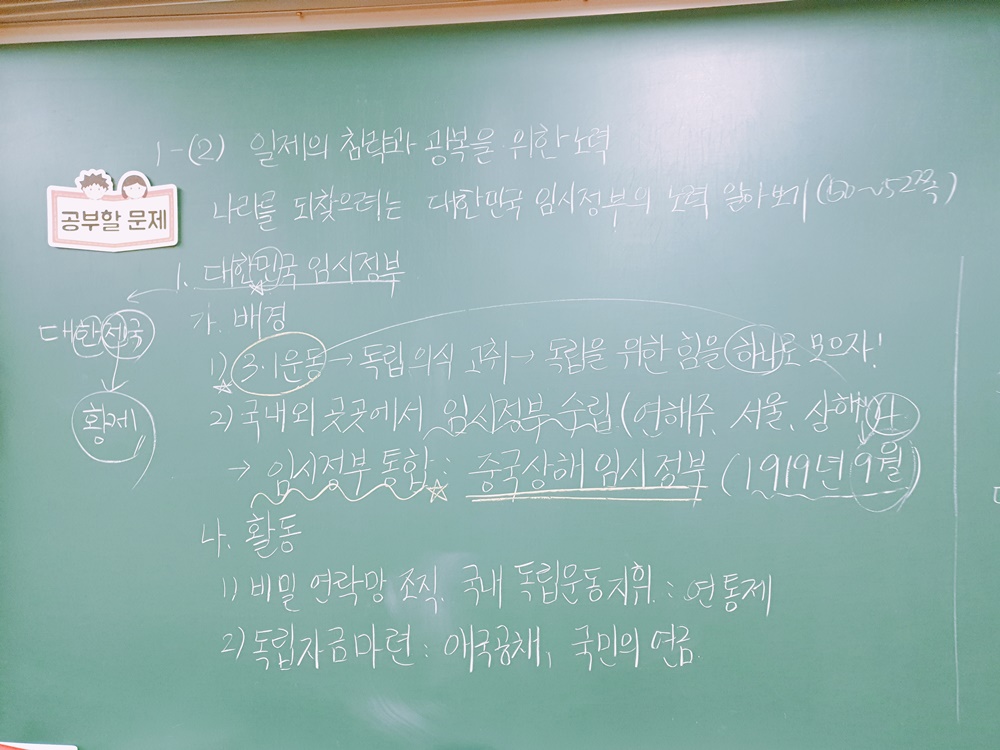 1-(2) 일제의 침략과 광복을 위한 노력
공부할 문제
나라를 되찾으려는 대한민국 임시정부의 노력 알아보기 (150~152쪽)
1. 대한민국 임시정부
대한제국
황제
가. 배경
1) 3·1운동 → 독립의식 고취 → 독립을 위한 힘을 하나로 모으자!
2) 국내외 곳곳에서 임시정부 수립 (연해주, 서울, 상해) 4
→ 임시정부 통합 : 중국상해 임시정부 (1919년 9월)
나. 활동
1) 비밀 연락망 조직, 국내 독립운동 지휘 : 연통제
2) 독립자금마련 : 애국공채, 국민의 연금